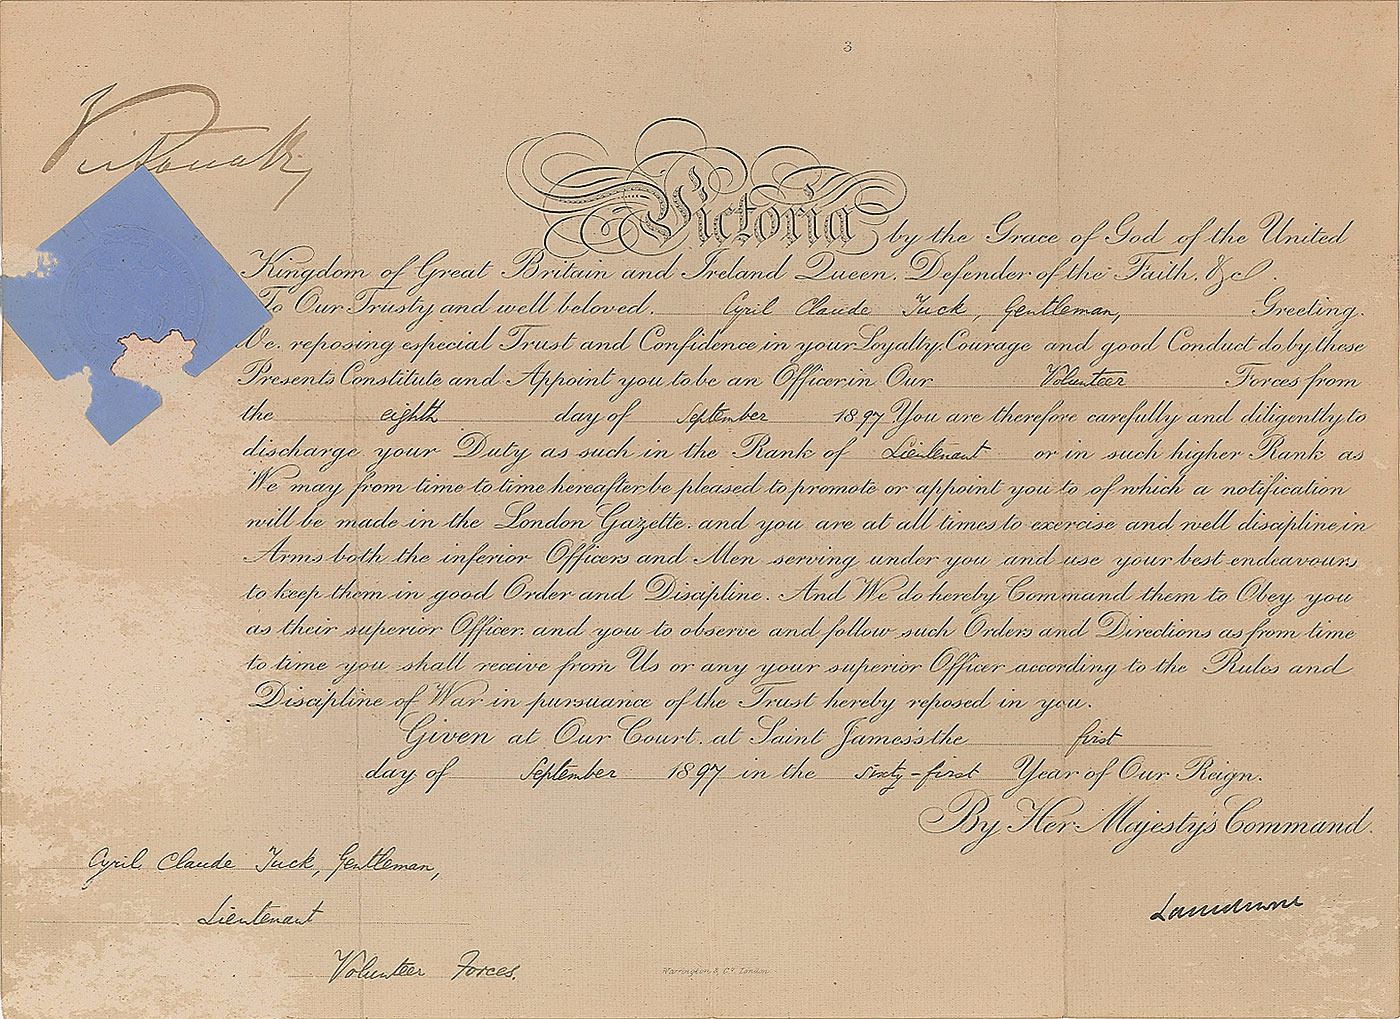 3
Victoria by the Grace of God of the United
Kingdom of Great Britain and Ireland Queen. Defender of the Faith. &c.
To Our Trusty and well beloved. Cyril Claude Tuck, Gentleman, Greeting.
We. reposing especial Trust and Confidence in your Loyalty. Courage and good Conduct do by these
Presents Constitute and Appoint you to be an Officer in Our Volunteer Forces from
the eighth day of September 1897 You are therefore carefully and diligently to
discharge your Duty as such in the Rank of Lieutenant or in such higher Rank as
We may from time to time hereafter be pleased to promote or appoint you to of which a notification
will be made in the London Gazette. and you are at all times to exercise and well discipline in
Arms both the inferior Officers and Men serving under you and use your best endeavours
to keep them in good Order and Discipline. And We do hereby Command them to Obey you
as their superior Officer. and you to observe and follow such Orders and Directions as from time
to time you shall receive from Us or any your superior Officer according to the Rules and
Discipline of War in pursuance of the Trust hereby reposed in you.
Given at Our Court. at Saint James's the first
day of September 1897 in the sixty-first Year of Our Reign.
By Her Majesty's Command.
Cyril Claude Tuck, Gentleman,
Lansdowne
Lieutenant
Volunteer Forces.
Warrington & Co. London